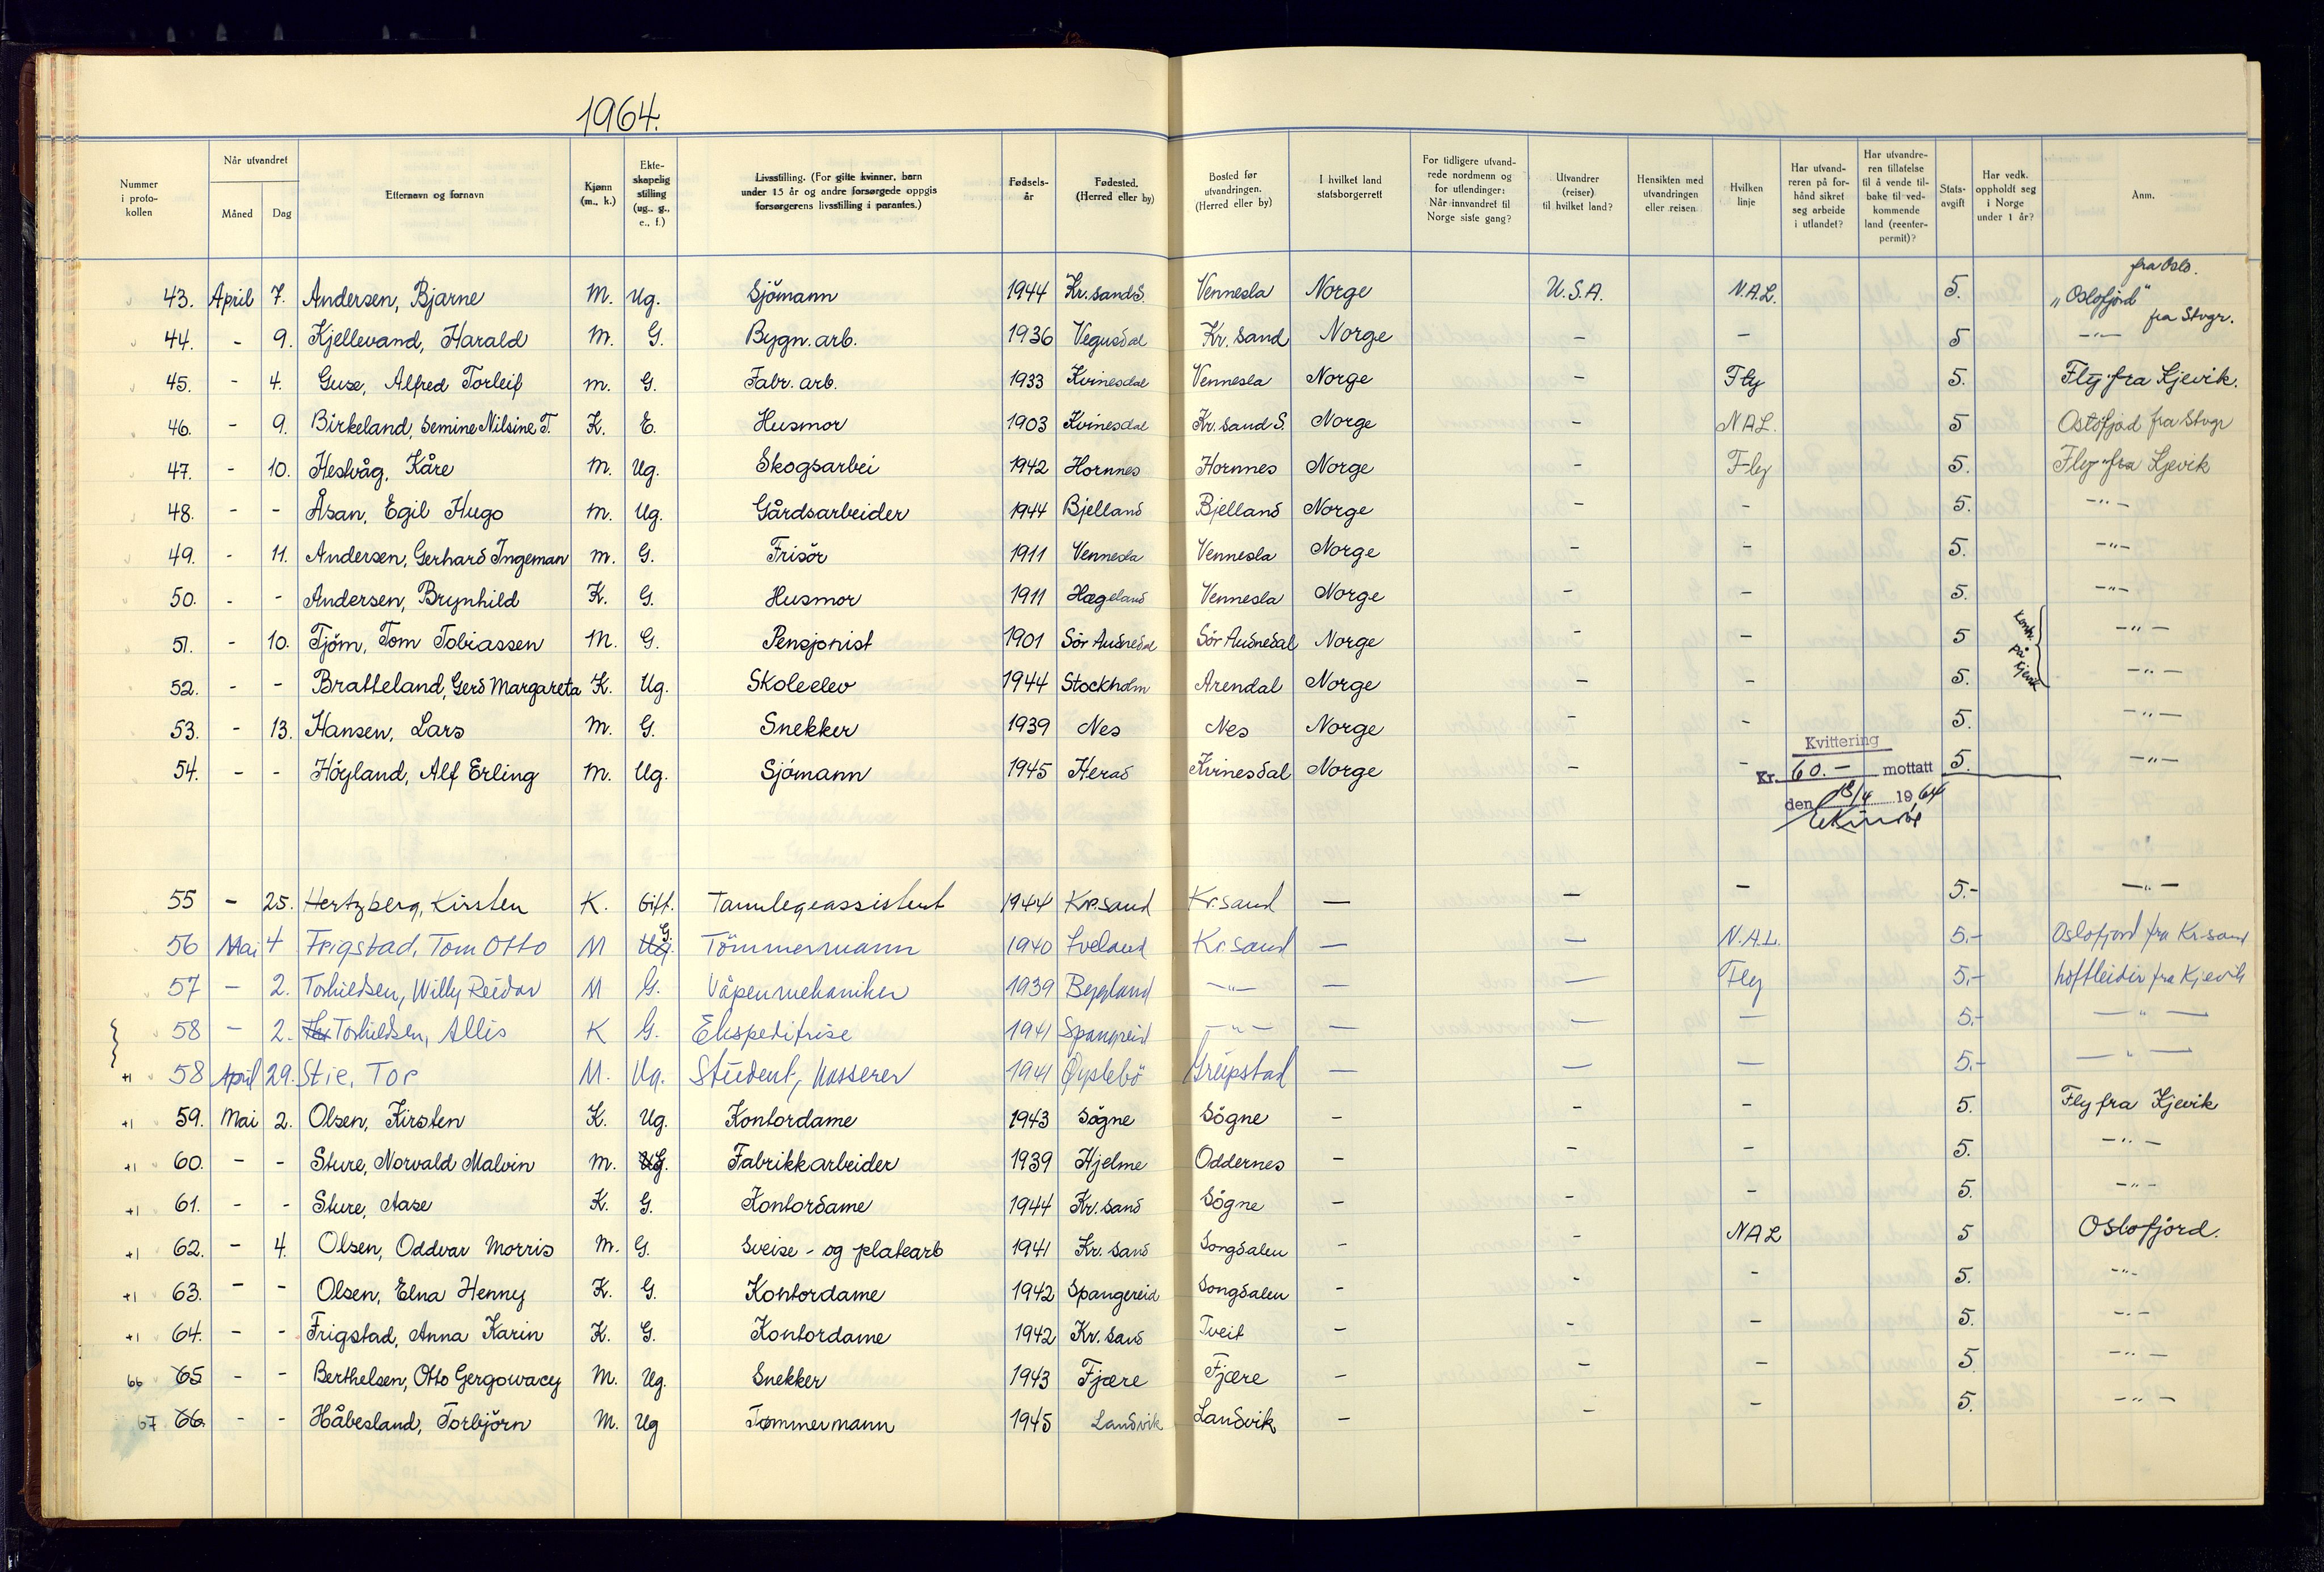 1964.
Nummer i proto-kollen | Når utvandret Måned Dag | Etternavn og fornavn | Kjønn (m., k.) | Ekte-skapelig stilling (ug., g., e., f.) | Livsstilling. (For gifte kvinner, barn under 15 år og andre forsørgede oppgis forsørgerens livsstilling i parantes.) | Fødsels-år | Fødested. (Herred eller by) | Bosted før utvandringen. (Herred eller by) | I hvilket land statsborgerrett | For tidligere utvand-rede nordmenn og for utlendinger: Når innvandret til Norge siste gang? | Utvandrer (reiser) til hvilket land? | Hensikten med utvandringen eller reisen | Hvilken linje | Har utvand-reren på for-hånd sikret seg arbeide i utlandet? | Har utvandre-ren tillatelse til å vende til-bake til ved-kommende land (reenter-permit)? | Stats-avgift | Har vedk. oppholdt seg i Norge under 1 år? | Anm.
43. April 7. Andersen, Bjarne M. Ug. Sjömann 1944 Kr.sand S. Vennesla Norge U.S.A. N.A.L. 5. "Oslofjord" fra Oslo.
44. - 9. Kjellevand, Harald M. G. Bygn. arb. 1936 Vegusdal Kr. sand Norge - - 5 -"- fra Stvgr.
45. - 4. Guse, Alfred Torleif M. G. Fabr. arb. 1933 Kvinesdal Vennesla Norge - Fly 5. Fly fra Kjevik.
46. - 9. Birkeland, Semine Nilsine T. K. E. Husmor 1903 Kvinesdal Kr. sand S. Norge - NAL. 5 Oslofjord fra Stvgr
47. - 10. Heslvåg, Kåre M. Ug. Skogsarbei 1942 Hornnes Hornnes Norge - Fly 5. Fly fra Kjevik
48. - - Åsan, Egil Hugo M. Ug. Gårdsarbeider 1944 Bjelland Bjelland Norge - - 5. -"-
49. - 11. Andersen, Gerhard Ingeman M. G. Frisör 1911 Vennesla Vennesla Norge - - 5. -"-
50. - - Andersen, Brynhild K. G. Husmor 1911 Hægeland Vennesla Norge - - 5. -"-
51. - 10. Tjöm, Tom Tobiassen M. G. Pensjonist 1901 Sör Audnedal Sör Audnedal Norge - - 5 -"-
52. - - Bratteland, Gerd Margareta K. Ug. Skoleelev 1944 Stockholm Arendal Norge - - 5. på Kjevik -"-
53. - 13. Hansen, Lars M. G. Snekker 1939 Nes Nes Norge - - 5. -"-
54. - - Höyland, Alf Erling M. Ug. Sjömann 1945 Herad Kvinesdal Norge - - 5. -"-
Kvittering
Kr. 60.- mottatt
den 13/4 1964
55 - 25. Hertzberg, Kirsten K. Gift. Tannlegeassistent 1944 Kr.sand Kr.sand - - - 5.- -"-
56 Mai 4 Frigstad, Tom Otto M Ug. G. Tömmermann 1940 Iveland Kr.sand - - N.A.L. 5.- Oslofjord fra Kr-sand
57 - 2. Torkildsen, Willy Reidar M G. Våpenmekaniker 1939 Bygland -"- - - Fly 5.- Loftleidir fra Kjevik
58 - 2. Torkildsen, Allis K G. Ekspeditrise 1941 Spangreid -"- - - - 5.- -"-
+1 58 April 29. Stie, Tor M. Ug. Student, Kasserer 1941 Öyslebö Greipstad - - - 5.- -"-
+1 59. Mai 2. Olsen, Kirsten K. Ug. Kontordame 1943 Sögne Sögne - - - 5. Fly fra Kjevik
+1 60. - - Sture, Norvald Malvin M. G. Fabrikkarbeider 1939 Hjelme Oddernes - - - 5. -"-
+1 61. - - Sture, Aase K. G. Kontordame 1944 Kr. sand Sögne - - - 5. -"-
+1 62. - 4. Olsen, Oddvar Morris M. G. Sveise - og platearb 1941 Kr. sand Songdalen - - NAL 5 Oslofjord.
+1 63. - - Olsen, Elna Henny K. G. Kontordame 1942 Spangereid Songdalen - - - 5. -"-
+1 64. - - Frigstad, Anna Karin K. G. Kontordame 1942 Kr. sand Tveit - - - 5. -"-
66 65 - - Berthelsen, Otto Gergowacy M. Ug. Snekker 1943 Fjære Fjære - - - 5 -"-
67 66. - - Håbesland, Torbjörn M. Ug Tømmermann 1945 Landvik Landvik - - - 5. -"-